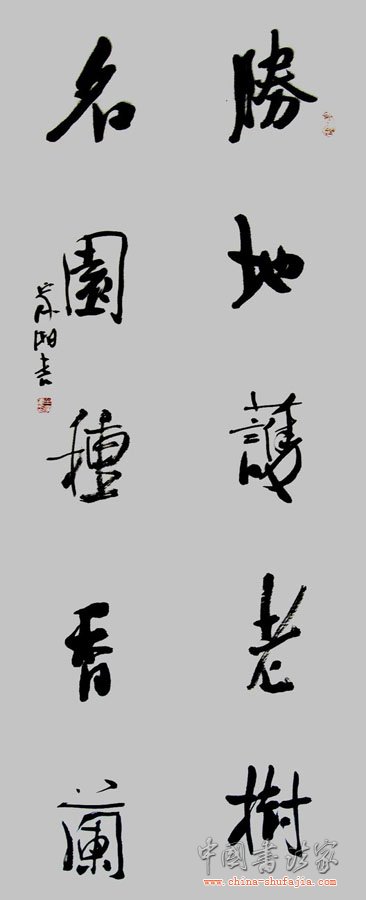 勝地護老樹
名園種香蘭
中國書法家
www.china-shufajia.com